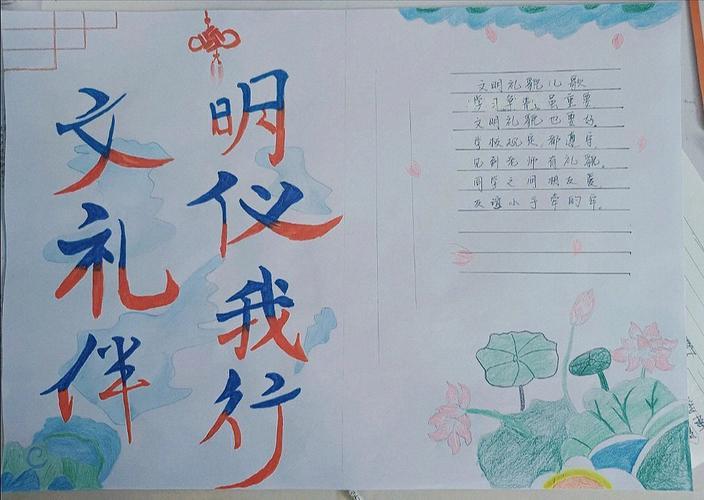 文明
礼仪
伴我
行
文明礼貌儿歌
学习虽重要
文明礼貌也要好
学校规矩都遵守
见到老师有礼貌。
同学之间相友爱
友谊小手牵的牢